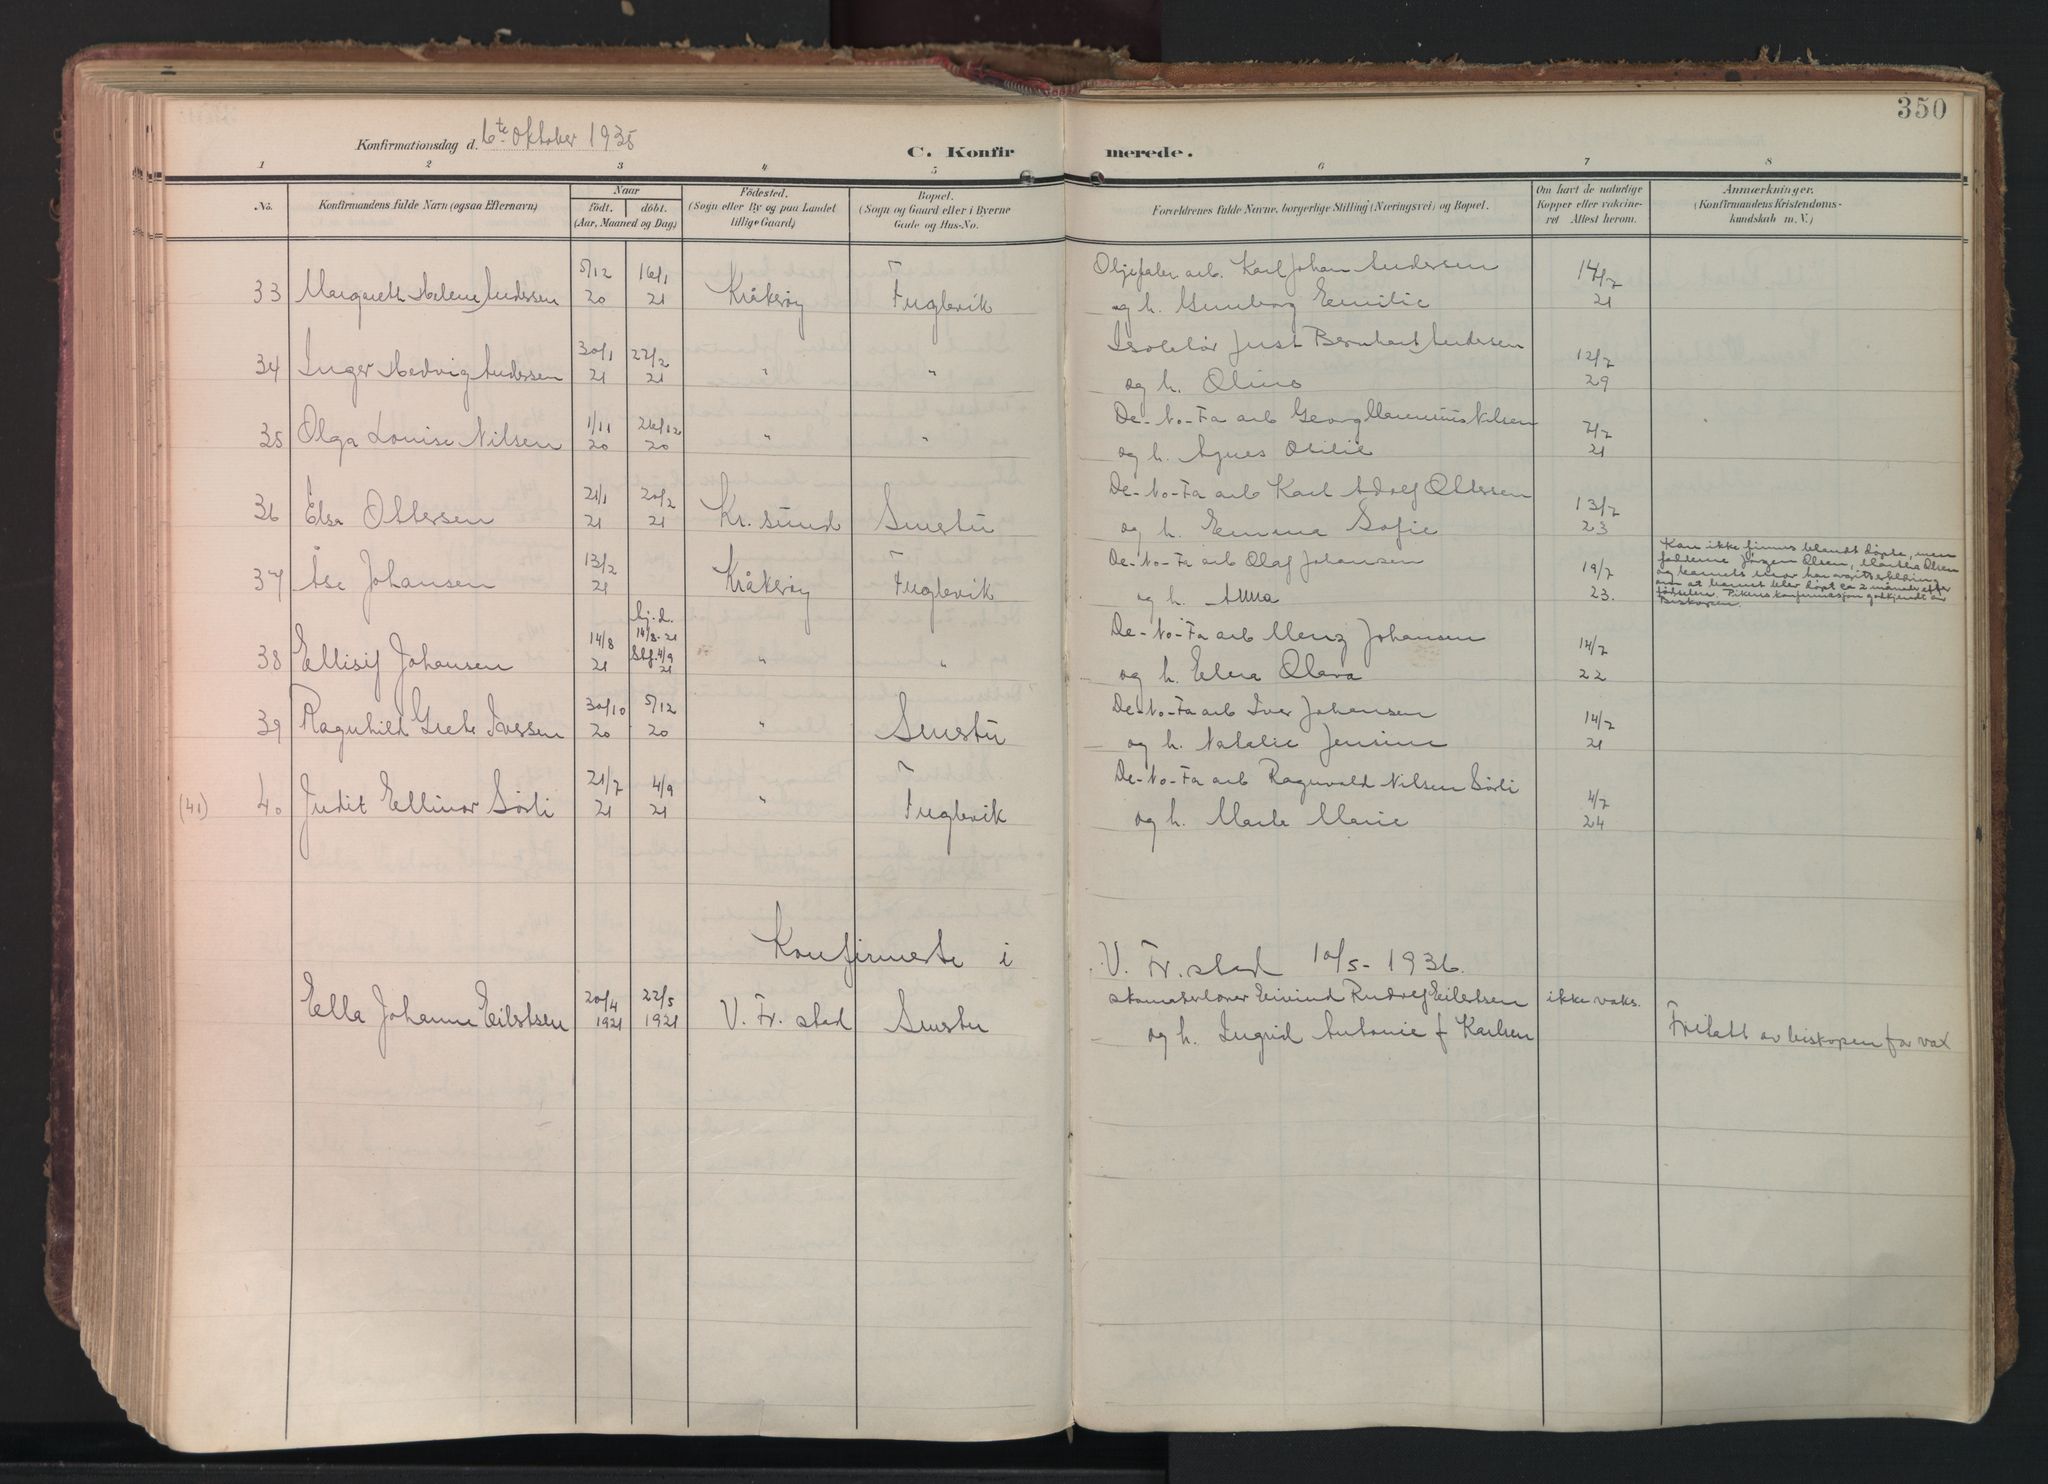 350
Konfirmationsdag d. 6te Oktober 1935
C. Konfirmerede.
1 2 3 4 5 6 7 8
No. Konfirmandens fulde Navn (ogsaa Efternavn). Naar født. døbt. (Aar, Maaned og Dag.) Fødested. (Sogn eller By og paa Landet tillige Gaard.) Bopæl. (Sogn og Gaard eller i Byerne Gade og Hus-No. Forældrenes fulde Navne, borgerlige Stilling (Næringsvei) og Bopæl. Om havt de naturlige Kopper eller vakcineret Attest herom. Anmærkninger. (Konfirmandens Kristendomskundskab m. V.)
5/12 16/1 Karl Johan Andersen 14/7
33 Margareth Helene Andersen 20 21 Kråkerøy Fuglevik og h. Gunborg Emilie 21
30/1 22/2 Isolatør Just Bernhart Andersen 12/7
34 Inger Hedvig Andersen 21 21 " " og h. 29
1/11 26/12 De-No-Fa arb Georg Nilsen 7/7
35 Olga Louise Nilsen 20 20 " " og h. Agnes Otilie 21
21/1 20/2 De-No-Fa arb Karl Adolf Ottersen 13/7
36 Elsa Ottersen 21 21 Kr. sund Smertu og h. Emma Sofie 23
13/2 De-No-Fa arb Olaf Johansen 19/7
37 Åse Johansen 21 Kråkerøy Fuglevik og h. Anna 23.
Kan ikke finnes blandt døpte, men
fadderne Jörgen Olsen, Martha Olsen
og barnets mor har avgitt erklæring
om at barnet blev døpt ca 2 måneder efter
fødselen. Pikens konfirmasjon godkjendt av
Biskopen.
hj. d.
14/8 14/8-21 De-No-Fa arb Menz Johansen 14/7
38 Ellisif Johansen 21 Stf. 4/9 21 " " og h. Elna Olava 22
30/10 5/12 De-No-Fa arb Iver Johansen 14/7
39 Ragnhild Grete Iversen 20 20 " Smertu og h. Natalie Jensine 21
21/7 4/9 De-No-Fa arb Ragnvald Nilsen Sørli 4/7
(41) 40 Judit Ellinor Sørli 21 21 " Fuglevik og h. Marie 24
Konfirmerte i V. Fr. stad 10/5-1936.
20/4 22/5 Eivind Rudolf Eilertsen ikke vaks.
Ella Johanne Eilertsen 1921 1921 V. Fr. stad Smertu og h. Ingrid Antonie f Karlsen Fritatt av biskopen for vax